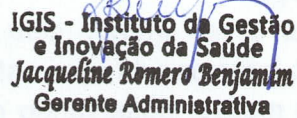 IGIS - Instituto de Gestão
e Inovação da Saúde
Jacqueline Romero Benjamim
Gerente Administrativa